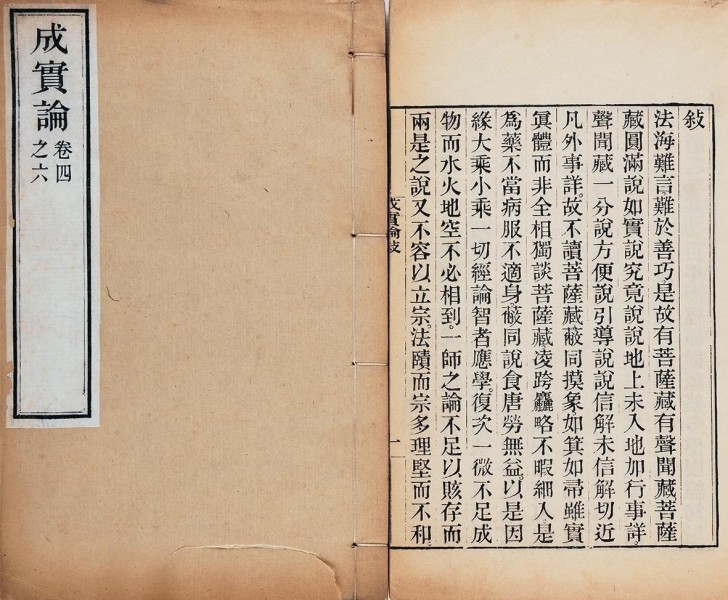 成實論
卷四
之六
敍
法海難言難於善巧是故有菩薩藏有聲聞藏菩薩
藏圓滿說如實說究竟說說地上未入地加行事詳。
聲聞藏一分說方便說引導說說信解未信解切近
凡外事詳。故不讀菩薩藏蔽同摸象。如箕如帚雖實
冥體而非全相。獨談菩薩藏凌跨麤略不暇細入是
爲藥不當病服不適身。蔽同說食唐勞無益。以是因
緣大乘小乘一切經論智者應學。復次一微不足成
物而水火地空不必相到。一師之論不足以賅存而
兩是之說又不容以立宗。法賾而宗多理堅而不和
成實論敍
一